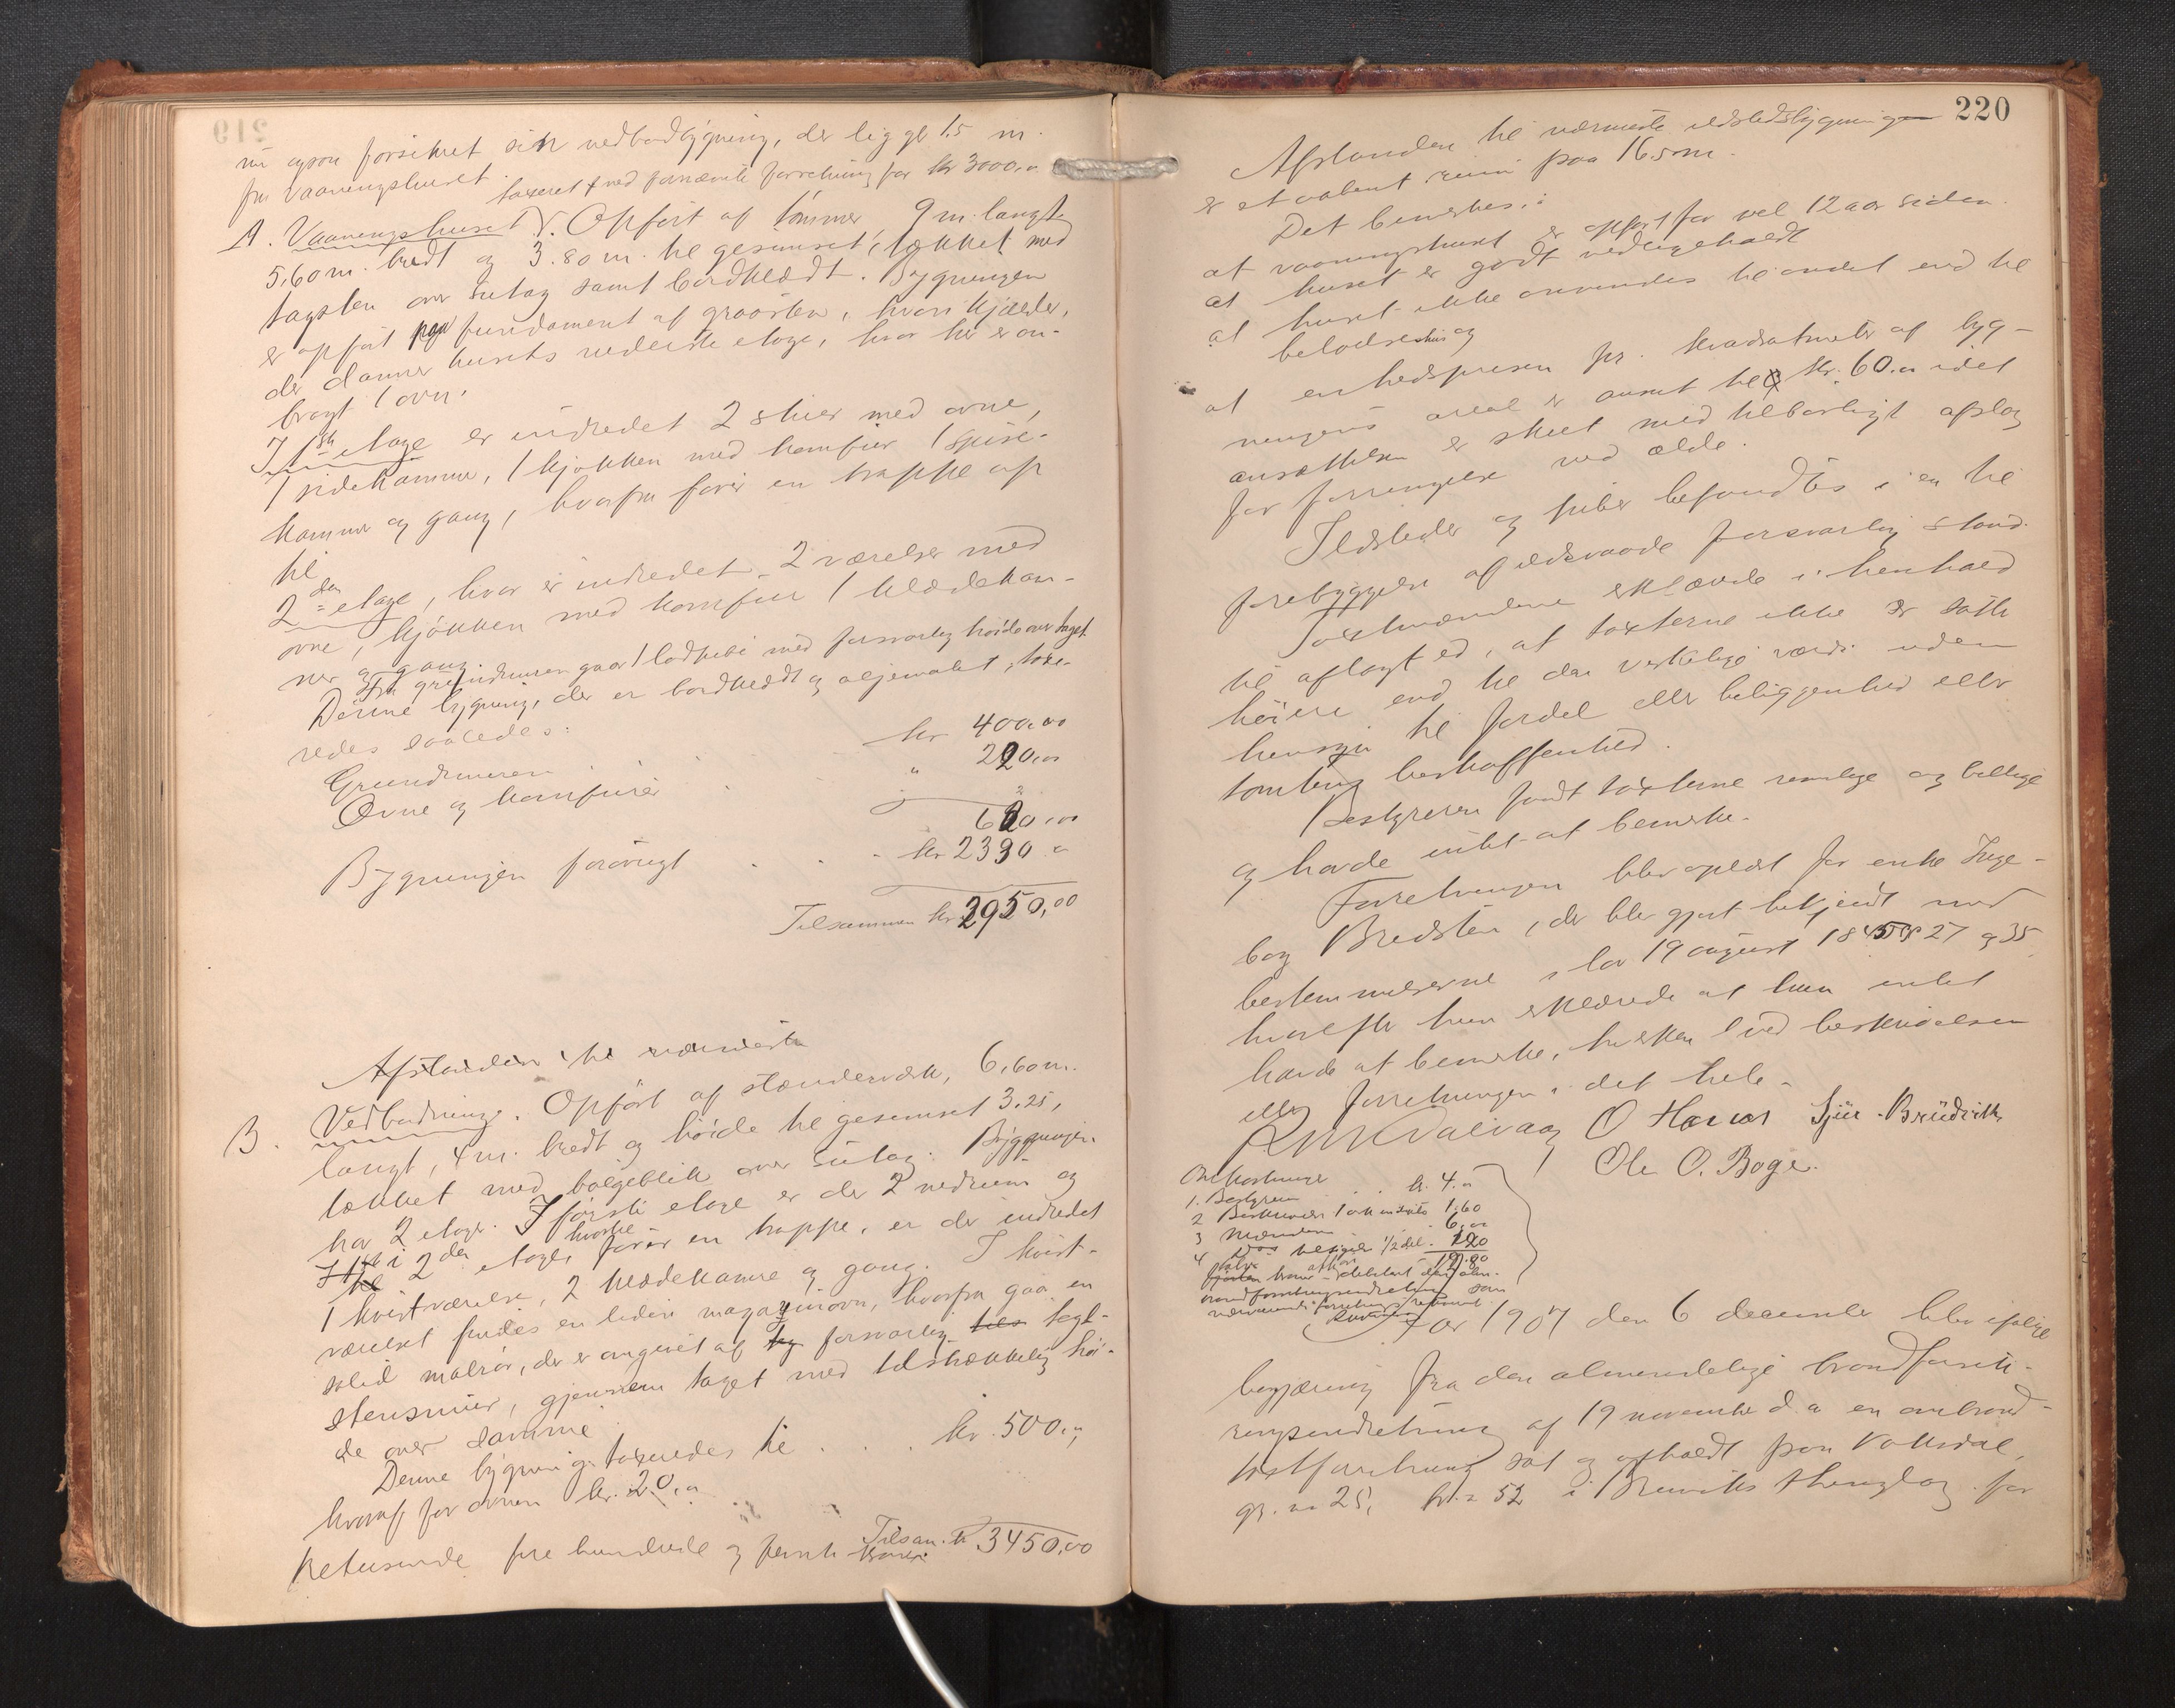 nu ogsaa forsikret sin vedbodbygning, der ligger 1.5 m.
fra vaaningshuset.
taxeret ved fornævnte forretning for kr 3000,00
A. Vaaningshuset. Opført af tømmer, 9 m. langt,
5,60 m. bredt og 3.80 m. til gesimset, tækket med
tagsten over sutag samt bordklædt. Bygningen
er opført paa fundament af graasten, hvori kjælder,
der danner husets nederste etage, hvor her er an-
bragt 1 ovn.
I 1ste etage er indredet 2 stuer med ovne,
1 sidekammer, 1 kjøkken med komfur 1 spise-
kammer og gang, hvorfra fører en trappe op
til
2den etage, hvor er indredet 2 værelser med
ovne, kjøkken med komfur 1 klædekam-
mer og gang.
Fra grundmuren gaar 1 lodpibe med forsvarlig høide over taget
Denne bygning, der er bordklædt og oljemalet, taxe-
redes saaledes:
Grundmuren . . . kr 400,00
Ovne og komfurer . . " 220,00
620,00
Bygningen forøvrigt . . . kr 2330,00
Tilsammen kr 2950,00
Afstanden til nærmeste
B. Vedbodninge. Opført af stænderværk, 6,60 m.
langt, 4 m. bredt og høide til gesimset 3.25,
tækket med bølgeblik over sutag. Bygningen
har 2 etager. I første etage er der 2 vedrum og
i 2den etage, hvortil fører en trappe, er der indredet
1 kvistværelse, 2 klædekamre og gang. I kvist-
værelset findes en liden magazinovn, hvorfra gaar en
solid malrør, der er omgivet af forsvarlig tegl-
stensmur, gjennem taget med tilstrækkelig høi-
de over samme
Denne bygning taxeredes til . . . kr. 500,00
hvoraf for ovnen kr. 20,00
Tilsam. kr 3450,00
Tretusinde fire hundrede og femti kroner.
220
Afstanden til nærmeste ildstedsbygninger
er et aabent rum paa 16.50 m.
Det bemerkes:
at vaaningshuset er opført for vel 12 aar siden.
at huset er godt vedligeholdt
at huset ikke anvendes til andet end til
beboelseshus og
at enhedsprisen pr. kvadratmeter af byg-
ningens areal er ansat til kr. 60.00 idet
ansættelsen er skeet med tilbørligt afslag
for forringelse ved ælde.
Ildsteder og piber befandtes i en til
forebyggelse af ildsvaade forsvarlig stand.
Taxtmændene erklærede i henhold
til aflagt ed, at taxterne ikke er satte
høiere end til den virkelige værdi uden
hensyn til fordel eller beliggenhed eller
tomtens beskaffenhed.
Bestyreren fandt taxterne rimelige og billige
og havde intet at bemerke.
Forretningen blev oplæst for enke Inge-
borg Bredsten, der blev gjort bekjendt med
bestemmelserne i lov 19 august 1845 §§ 27 og 35
hvorefter hun erklærede at hun intet
havde at bemerke, hverken ved beskrivelsen
eller forretningen i det hele.
O Ole O. Boge.
Omkostninger
1. Bestyreren . . . kr. 4.00
2 Beskrivelse 1.60
3 Mændene . 6,00
4 1/2 del.
For 1907 den 6 december blev ifølge
begjæring fra den almindelige brandforsik-
ringsindretning af 19 november d. a. en ombrand-
taxtforretning sat og afholdt paa Vaksdal,
gr. no 25, br. no 52 i Bruviks thinglag for